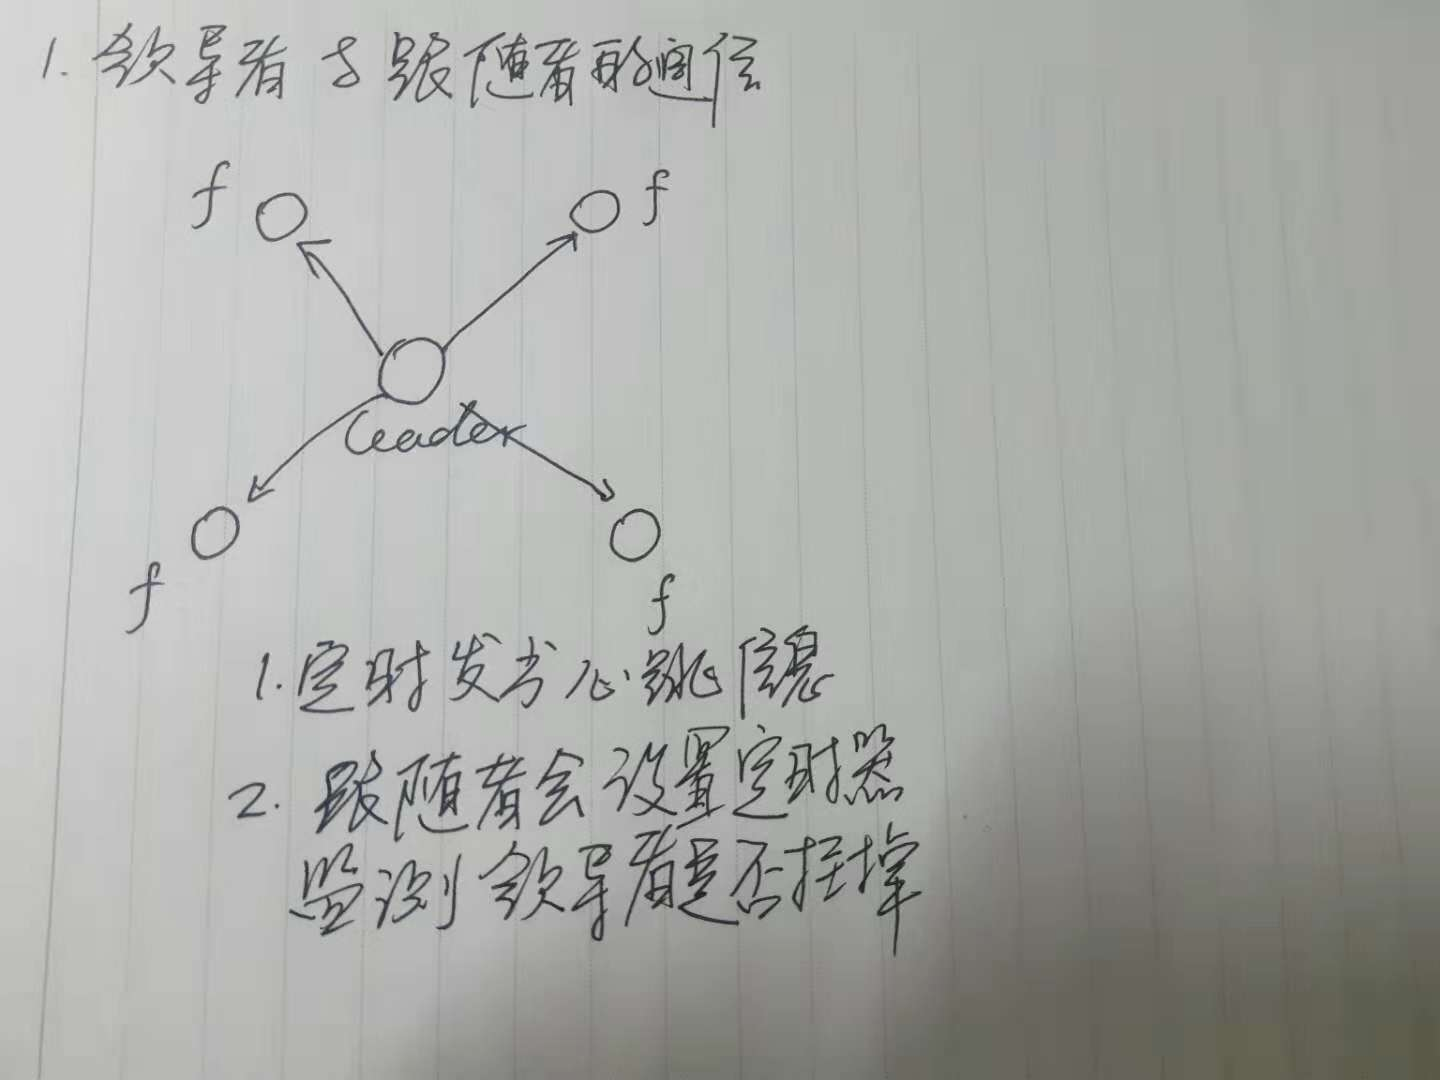 1. 领导者与跟随者的通信
f
f
Leader
f
f
1. 定时发出心跳信息
2. 跟随者会设置定时器
监测领导者是否挂掉